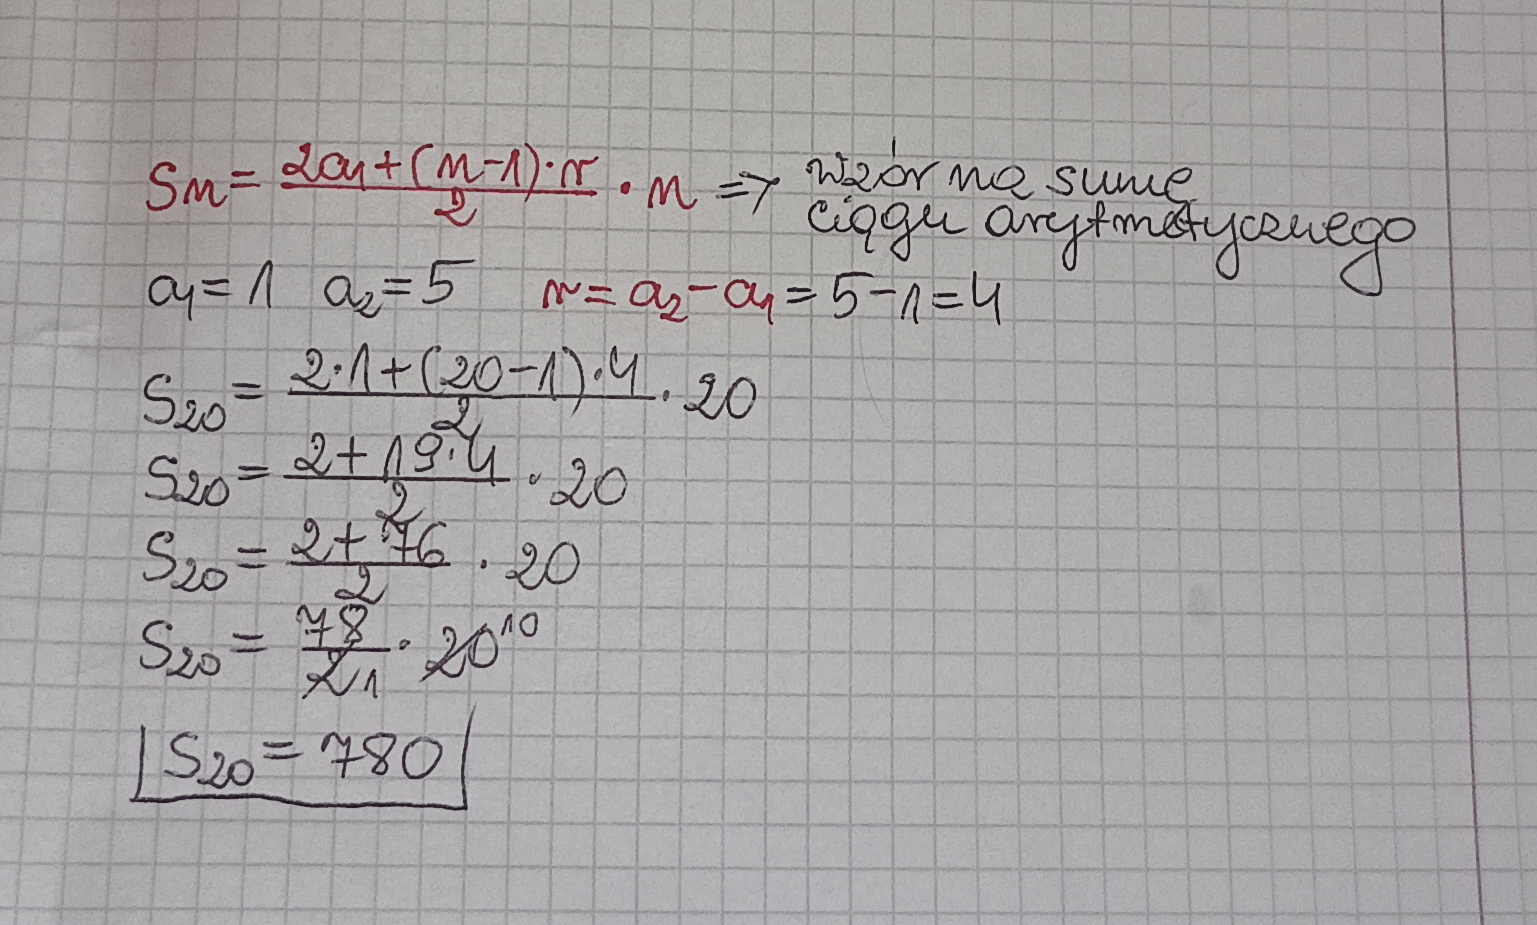 Sn = (2a₁ + (n-1)·r)/2 · n => wzór na sumę
ciągu arytmetycznego
a₁ = 1 a₂ = 5 r = a₂ - a₁ = 5 - 1 = 4
S₂₀ = (2·1 + (20-1)·4)/2 · 20
S₂₀ = (2 + 19·4)/2 · 20
S₂₀ = (2 + 76)/2 · 20
S₂₀ = 78/2 1 · 20 10
S₂₀ = 780